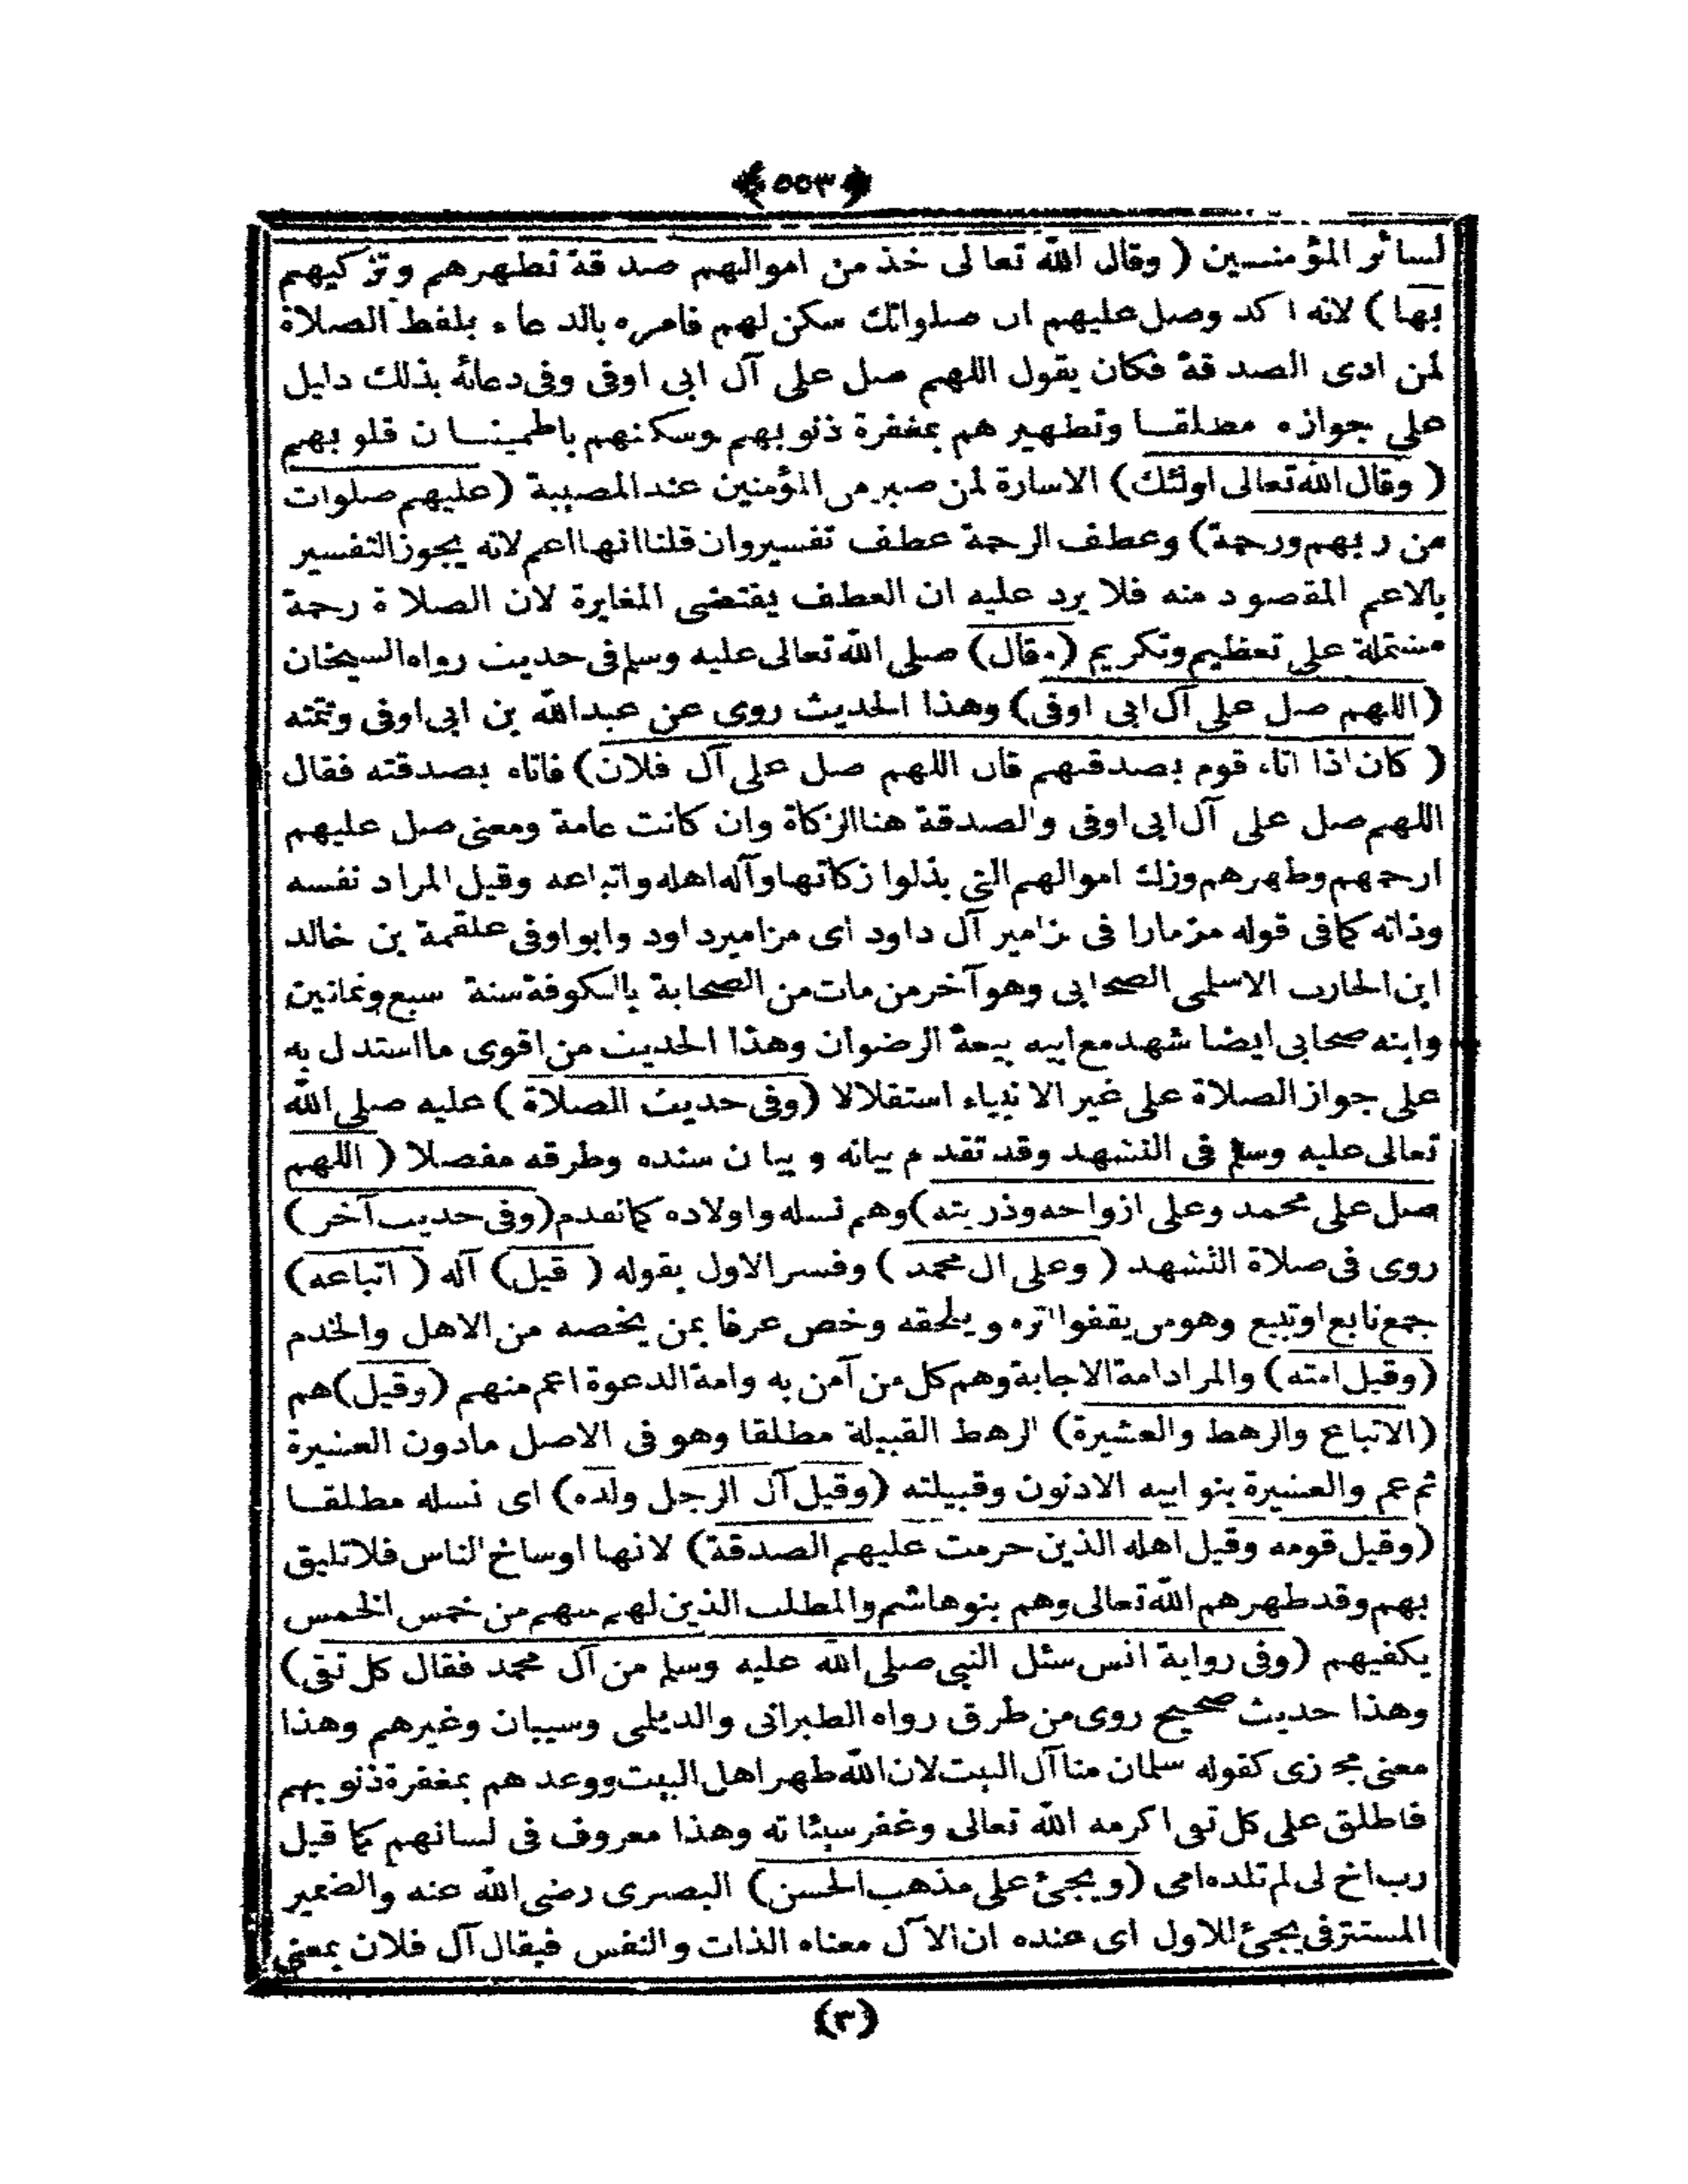 ﴿٥٥٣﴾
لسائر المؤمنين ( وقال الله تعالى خذ من اموالهم صدقة تطهرهم وتزكيهم
بها ) لانه اكد وصل عليهم ان صلواتك سكن لهم فامره بالدعاء بلفظ الصلاة
لمن ادى الصدقة فكان يقول اللهم صل على آل ابى اوفى وفى دعائه بذلك دليل
على جوازه مطلقا وتطهيرهم بمغفرة ذنوبهم وسكنهم باطمينان قلوبهم
( وقال الله تعالى اولئك ) الاسارة لمن صبر من المؤمنين عند المصيبة ( عليهم صلوات
من ربهم ورحمة ) وعطف الرحمة عطف تفسير وان قلنا انها اعم لانه يجوز التفسير
بالاعم المقصود منه فلا يرد عليه ان العطف يقتضى المغايرة لان الصلاة رحمة
مشتملة على تعظيم وتكريم ( وقال ) صلى الله تعالى عليه وسلم فى حديث رواه السيخان
( اللهم صل على آل ابى اوفى ) وهذا الحديث روى عن عبدالله بن ابى اوفى وتتمته
( كان اذا اتاه قوم بصدقتهم قال اللهم صل على آل فلان ) فاتاه بصدقته فقال
اللهم صل على آل ابى اوفى والصدقة هنا الزكاة وان كانت عامة ومعنى صل عليهم
ارحمهم وطهرهم وزك اموالهم التى بذلوا زكاتها وآله اهله واتباعه وقيل المراد نفسه
وذاته كمافى قوله مزمارا فى مزامير آل داود اى مزامير داود وابو اوفى علقمة بن خالد
ابن الحارث الاسلمى الصحابى وهو آخر من مات من الصحابة بالكوفة سنة سبع وثمانين
وابنه صحابى ايضا شهد مع ابيه بيعة الرضوان وهذا الحديث من اقوى مااستدل به
على جواز الصلاة على غير الانبياء استقلالا ( وفى حديث الصلاة ) عليه صلى الله
تعالى عليه وسلم فى التشهد وقد تقدم بيانه وبيان سنده وطرقه مفصلا ( اللهم
صل على محمد وعلى ازواجه وذريته ) وهم نسله واولاده كماتقدم ( وفى حديث آخر )
روى فى صلاة التشهد ( وعلى ال محمد ) وفسر الاول بقوله ( قيل ) آله ( اتباعه )
جمع تابع اوتبيع وهو من يقفوا اثره ويلحقه وخص عرفا بمن يخصه من الاهل والخدم
( وقيل امته ) والمراد امة الاجابة وهم كل من آمن به وامة الدعوة اعم منهم ( وقيل ) هم
( الاتباع والرهط والعشيرة ) الرهط القبيلة مطلقا وهو فى الاصل مادون العشيرة
ثم عم والعشيرة بنو ابيه الادنون وقبيلته ( وقيل آل الرجل ولده ) اى نسله مطلقا
( وقيل قومه وقيل اهله الذين حرمت عليهم الصدقة ) لانها اوساخ الناس فلا تليق
بهم وقد طهرهم الله تعالى وهم بنو هاشم والمطلب الذين لهم سهم من خمس الخمس
يكفيهم ( وفى رواية انس سئل النبى صلى الله عليه وسلم من آل محمد فقال كل تقى )
وهذا حديث صحيح روى من طرق رواه الطبرانى والديلمى وسيبان وغيرهم وهذا
معنى مجازى كقوله سلمان منا آل البيت لان الله طهر اهل البيت ووعدهم بمغفرة ذنوبهم
فاطلق على كل تقى اكرمه الله تعالى وغفر سيئاته وهذا معروف فى لسانهم كما قيل
رب اخ لى لم تلده امى ( ويجئ على مذهب الحسن ) البصرى رضى الله عنه والضمير
المستتر فى يجئ للاول اى عنده ان الآل معناه الذات والنفس فيقال آل فلان بمعنى
(٣)